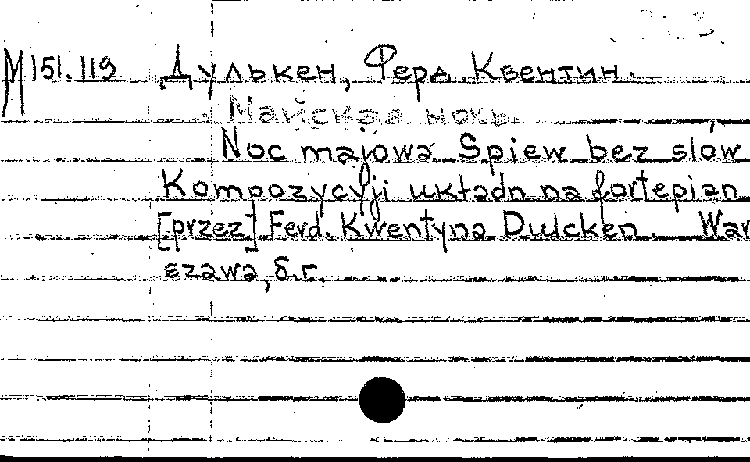 M 151.119 Дулькен, Ферд. Квентин.
Майская ночь.
Noc majowa Spiew bez słów
Kompozycyji układn na fortepian
[przez] Ferd. Kwentyna Dulcken. War
szawa, б.г.